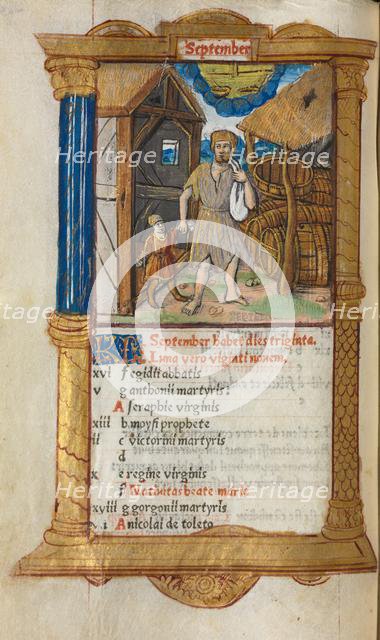 September
September habet dies triginta.
Luna vero viginti novem.
xvi f egidii abbatis
v g anthonii martyris.
A seraphie virginis
xiii b moysi prophete
ii c victorini martyris
d
x e regine virginis
f Nativitas beate marie
xviii g gorgonii martyris
A nicolai de toleto
Heritage Heritage
Heritage Heritage
Heritage Heritage
Heritage Heritage